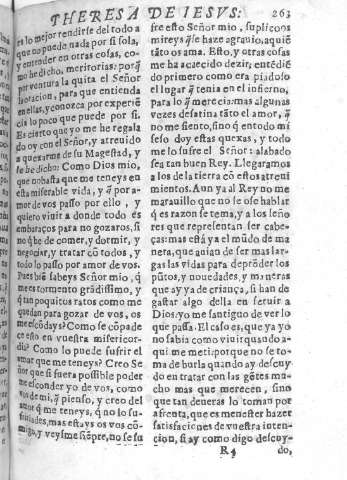 THERESA DE IESVS: 263
es lo mejor rendirse del todo a
que no puede nada por si sola,
y entender en otras cosas, co-
mo he dicho, meritorias: porq̃
por ventura la quita el Señor
la oracion, para que entienda
en ellas, y conozca por experiẽ
cia lo poco que puede por si.
Es cierto que yo me he regala
do oy con el Señor, y atreuido
a quexarme de su Magestad, y
le he dicho: Como Dios mio,
que no basta que me teneys en
esta miserable vida, y q̃ por a-
mor de vos passo por ello, y
quiero viuir a donde todo es
embaraços para no gozaros, si
no q̃ he de comer, y dormir, y
negociar, y tratar cõ todos, y
todo lo passo por amor de vos.
Pues biẽ sabeys Señor mio, q̃
me es tormento grãdissimo, y
q̃ tan poquitos ratos como me
quedan para gozar de vos, os
me escõdays? Como se cõpade
ce esto en vuestra misericor-
dia? Como lo puede sufrir el
amor que me teneys? Creo Se
ñor que si fuera possible poder
me esconder yo de vos, como
vos de mi, q̃ pienso, y creo del
amor q̃ me teneys, q̃ no lo su-
friades, mas estays os vos cõ-
migo, y veysme siẽpre, no se su
fre esto Señor mio, suplicoos
mireys q̃ se haze agrauio, a quiẽ
tãto os ama. Esto, y otras cosas
me ha acaecido dezir, entẽdiẽ
do primero como era piadoso
el lugar q̃ tenia en el infierno,
para lo q̃ merecia: mas algunas
vezes desatina tãto el amor, q̃
no me siento, sino q̃ en todo mi
seso doy estas quexas, y todo
me lo sufre el Señor: alabado
sea tan buen Rey. Llegaramos
a los de la tierra cõ estos atreui
mientos. Aun ya al Rey no me
marauillo que no se ose hablar
q̃ es razon se tema, y a los seño
res que representan ser cabe-
ças: mas està ya el mũdo de ma
nera, que auian de ser mas lar-
gas las vidas para deprẽder los
pũtos, y nouedades, y maneras
que ay ya de criança, si han de
gastar algo della en seruir a
Dios: yo me santiguo de ver lo
que passa. El caso es, que ya yo
no sabia como viuir quando a-
qui me meti: porque no se to-
ma de burla quando ay descuy-
do en tratar con las gẽtes mu-
cho mas que merecen, sino
que tan deueras lo toman por
afrenta, que es menester hazer
satisfaciones de vuestra inten-
cion, si ay como digo descuy-
R 4 do,